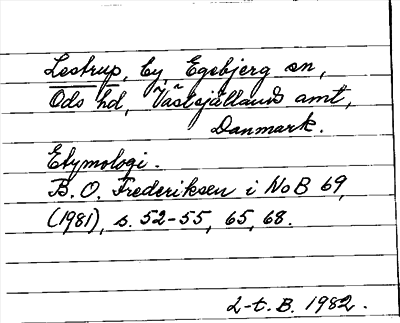 Lestrup, by, Egebjerg sn,
Ods hd, Västsjällands amt,
Danmark.
Etymologi.
B. O. Frederiksen i NoB 69,
(1981), s. 52-55, 65, 68.
2-t. B. 1982.